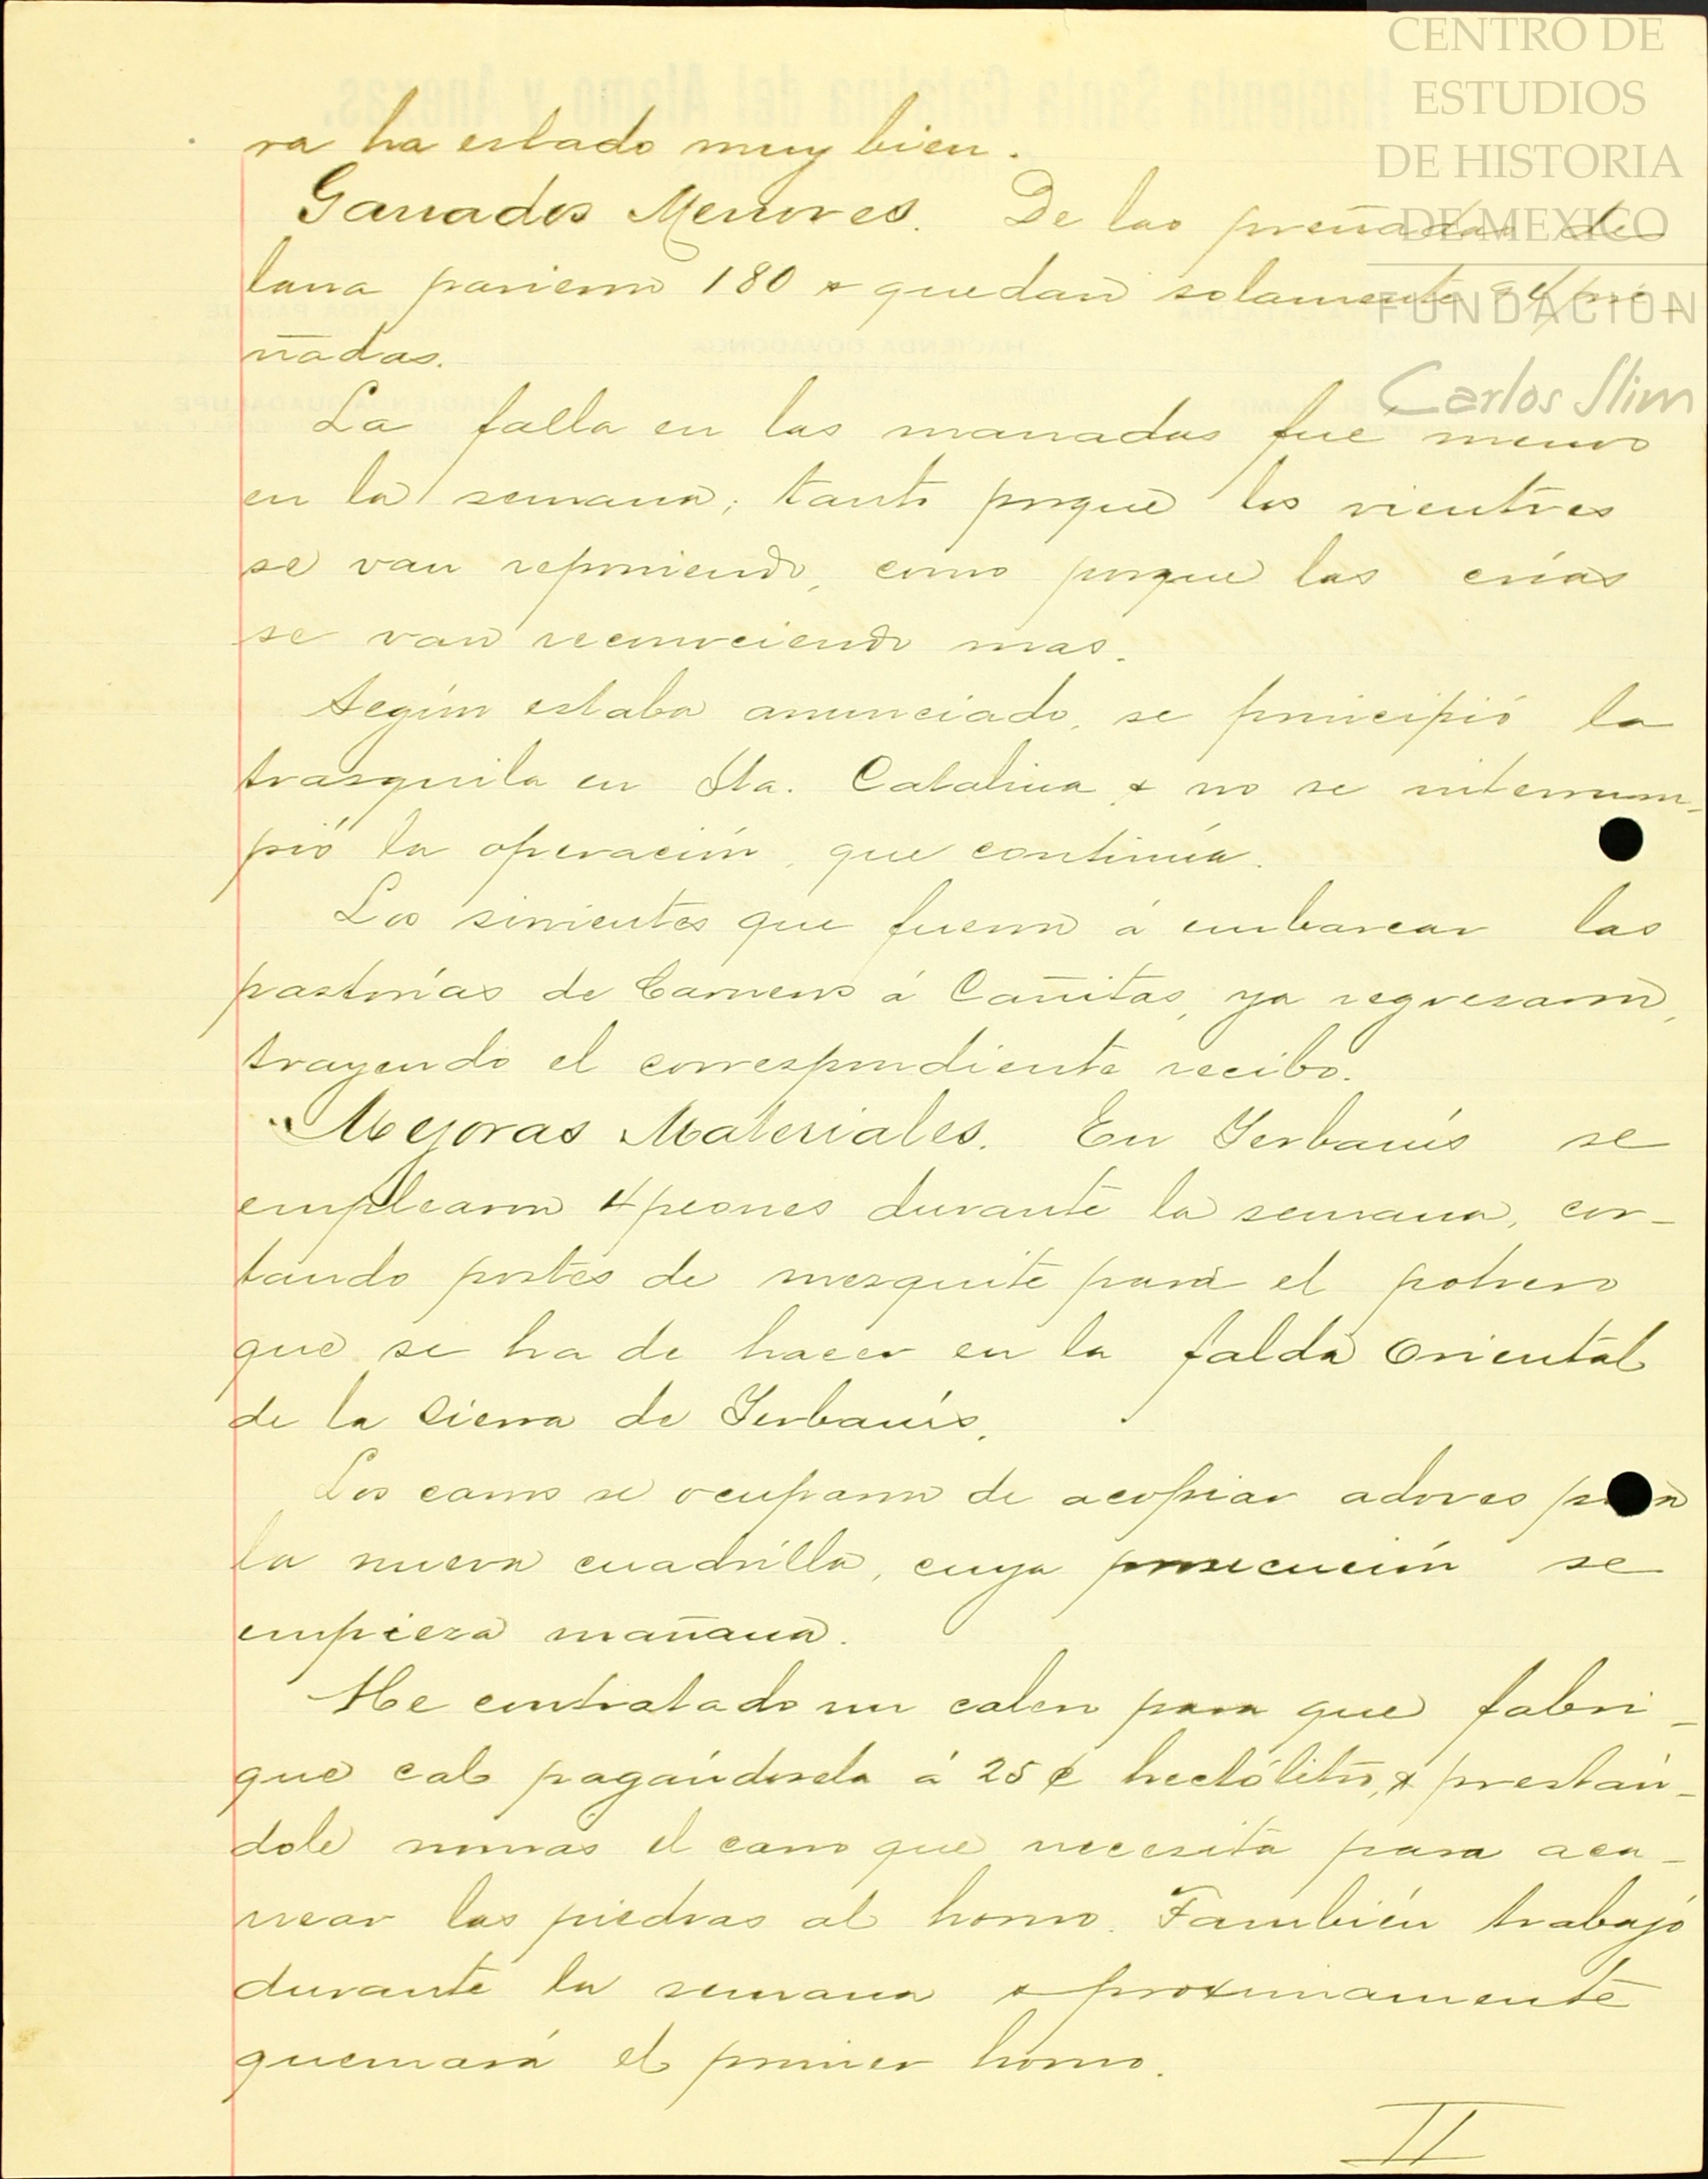 CENTRO DE
ESTUDIOS
DE HISTORIA
DE MEXICO
FUNDACION
Carlos Slim
Hacienda Santa Catalina del Alamo y Anexas.
ra ha estado muy bien.
Ganados Menores. De las preñadas de
lana parieron 180 & quedan solamente pre-
ñadas.
La falla en las manadas fue menos
en la semana; tanto porque los vientres
se van reponiendo, como porque las crías
se van reconociendo mas.
Según estaba anunciado, se principió la
trasquila en Sta. Catalina & no se interrum-
pió la operación, que continúa.
Los sirvientes que fueron á embarcar las
pastorías de Carneros á Cañitas, ya regresaron,
trayendo el correspondiente recibo.
Mejoras Materiales. En Yerbanís se
emplearon 4 peones durante la semana, cor-
tando postes de mezquite para el potrero
que se ha de hacer en la falda Oriental
de la Sierra de Yerbanís.
Los carros se ocuparon de acopiar adoves para
la nueva cuadrilla, cuya prosecución se
empieza mañana.
He contratado un calero para que fabri-
que cal pagándosela á 25 ¢ hectólitro, & prestán-
dole nomas el carro que necesita para aca-
rrear las piedras al horno. También trabajó
durante la semana & proximamente
quemará el primer horno.
II